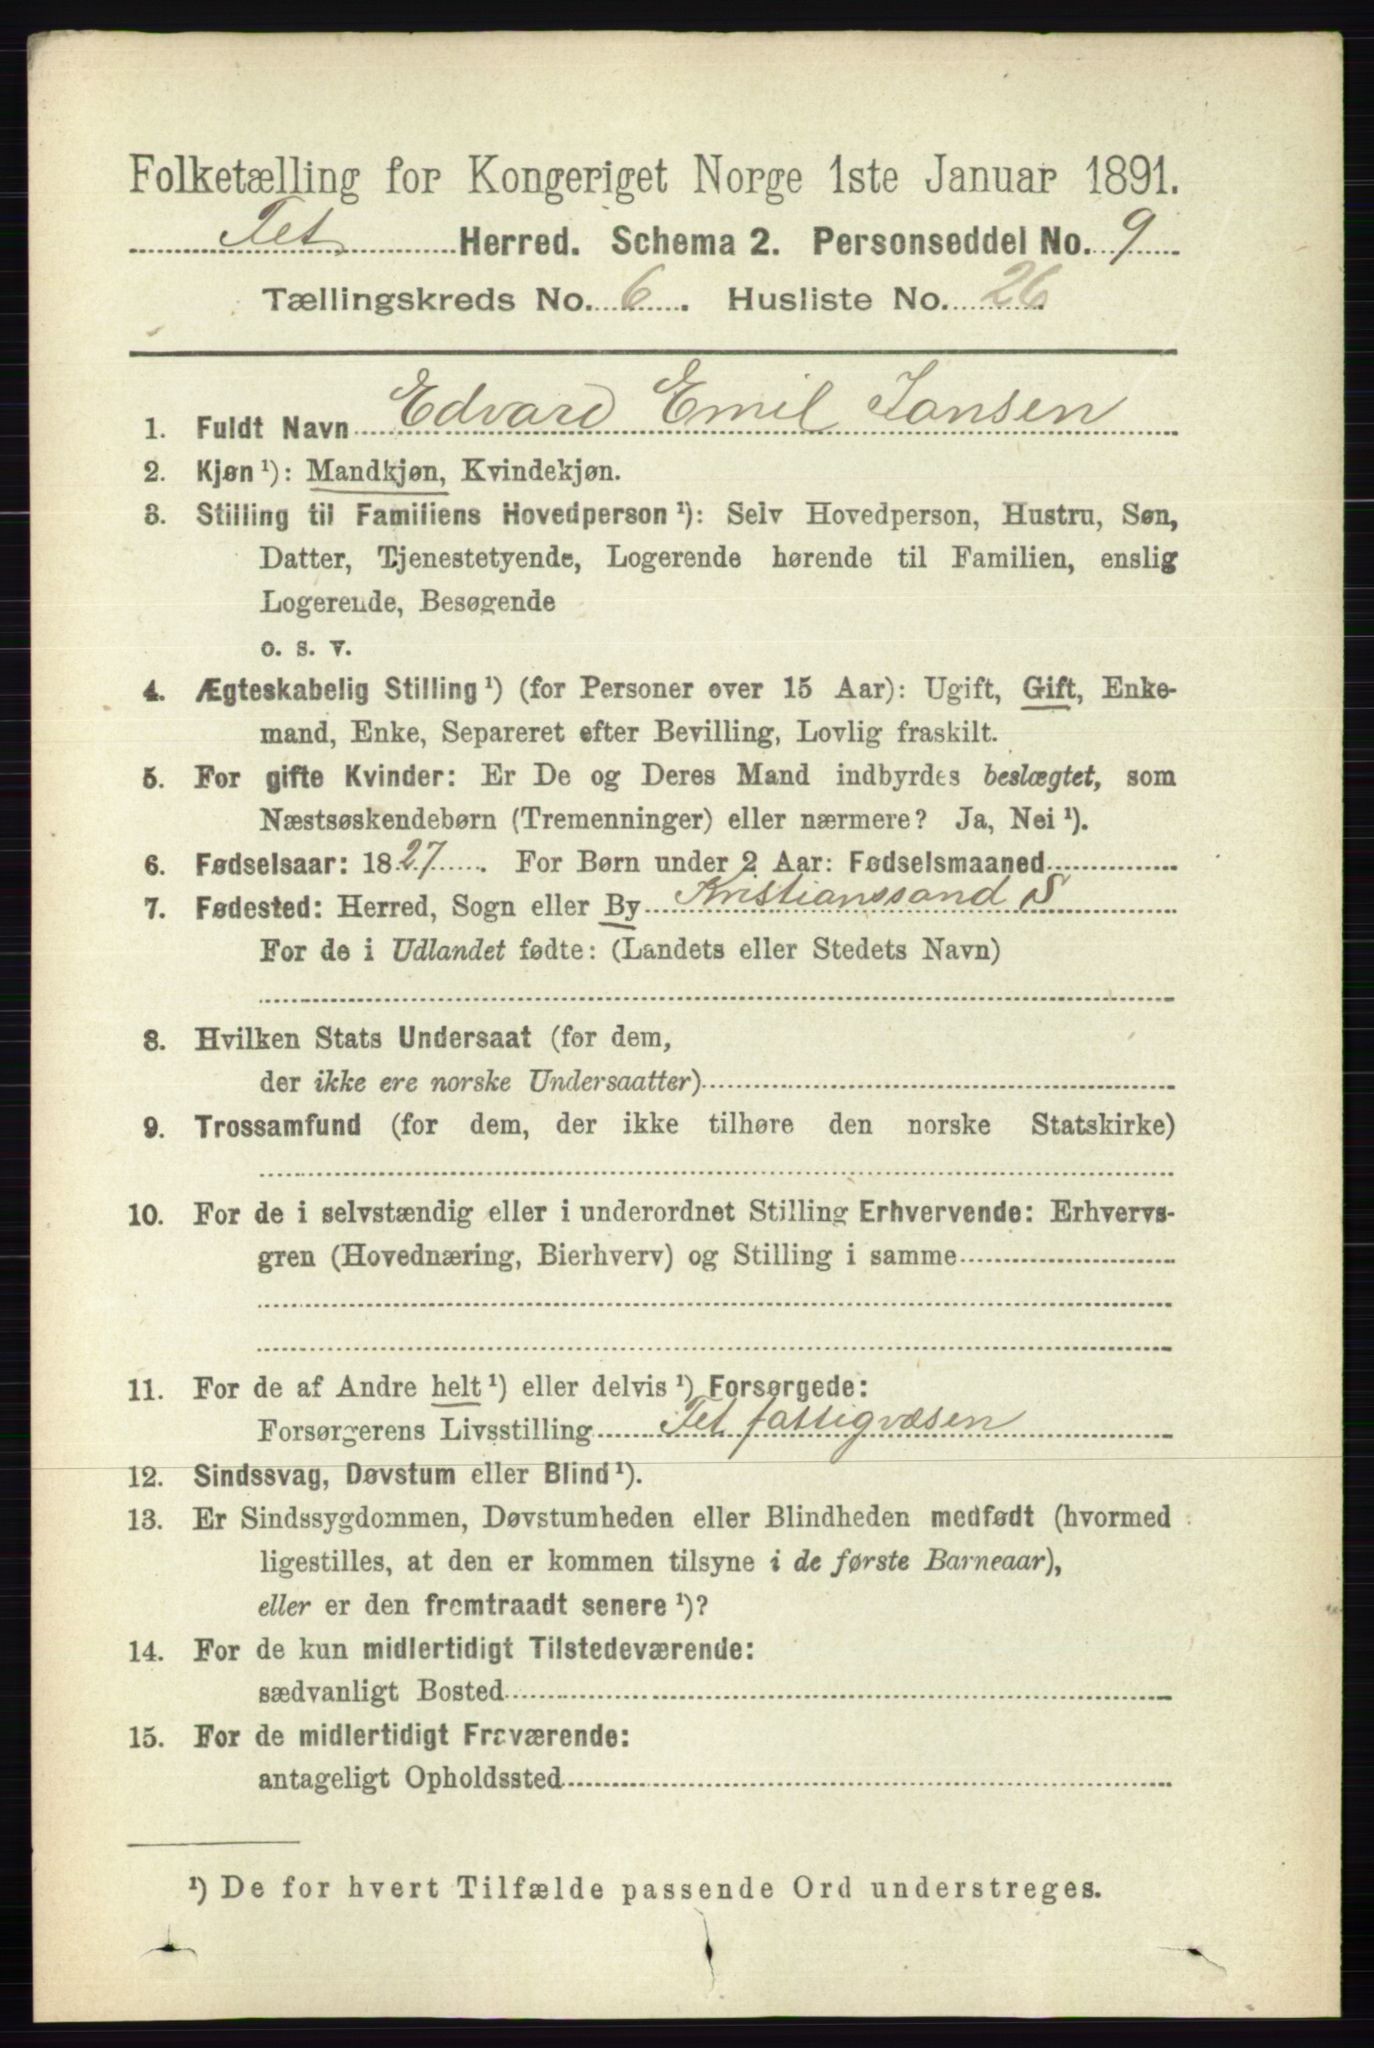 Folketælling for Kongeriget Norge 1ste Januar 1891.
Fet Herred. Schema 2. Personseddel No. 9
Tællingskreds No. 6. Husliste No. 26.
1. Fuldt Navn Edvard Emil Jansen
2. Kjøn ¹): Mandkjøn, Kvindekjøn.
3. Stilling til Familiens Hovedperson ¹): Selv Hovedperson, Hustru, Søn,
Datter, Tjenestetyende, Logerende hørende til Familien, enslig
Logerende, Besøgende
o. s. v.
4. Ægteskabelig Stilling ¹) (for Personer over 15 Aar): Ugift, Gift, Enke-
mand, Enke, Separeret efter Bevilling, Lovlig fraskilt.
5. For gifte Kvinder: Er De og Deres Mand indbyrdes beslægtet, som
Næstsøskendebørn (Tremenninger) eller nærmere? Ja, Nei ¹).
6. Fødselsaar: 1827. For Børn under 2 Aar: Fødselsmaaned
7. Fødested: Herred, Sogn eller By Kristianssand S
For de i Udlandet fødte: (Landets eller Stedets Navn)
8. Hvilken Stats Undersaat (for dem,
der ikke ere norske Undersaatter)
9. Trossamfund (for dem, der ikke tilhøre den norske Statskirke)
10. For de i selvstændig eller i underordnet Stilling Erhvervende: Erhvervs-
gren (Hovednæring, Bierhverv) og Stilling i samme
11. For de af Andre helt ¹) eller delvis ¹) Forsørgede:
Forsørgerens Livsstilling Fet fattigvæsen
12. Sindssvag, Døvstum eller Blind ¹).
13. Er Sindssygdommen, Døvstumheden eller Blindheden medfødt (hvormed
ligestilles, at den er kommen tilsyne i de første Barneaar),
eller er den fremtraadt senere ¹)?
14. For de kun midlertidigt Tilstedeværende:
sædvanligt Bosted
15. For de midlertidigt Fraværende:
antageligt Opholdssted
¹) De for hvert Tilfælde passende Ord understreges.